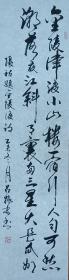 金陵津渡小山楼一宿行人自可愁
潮落夜江斜月里两三星火是瓜州
張祜題金陵渡诗